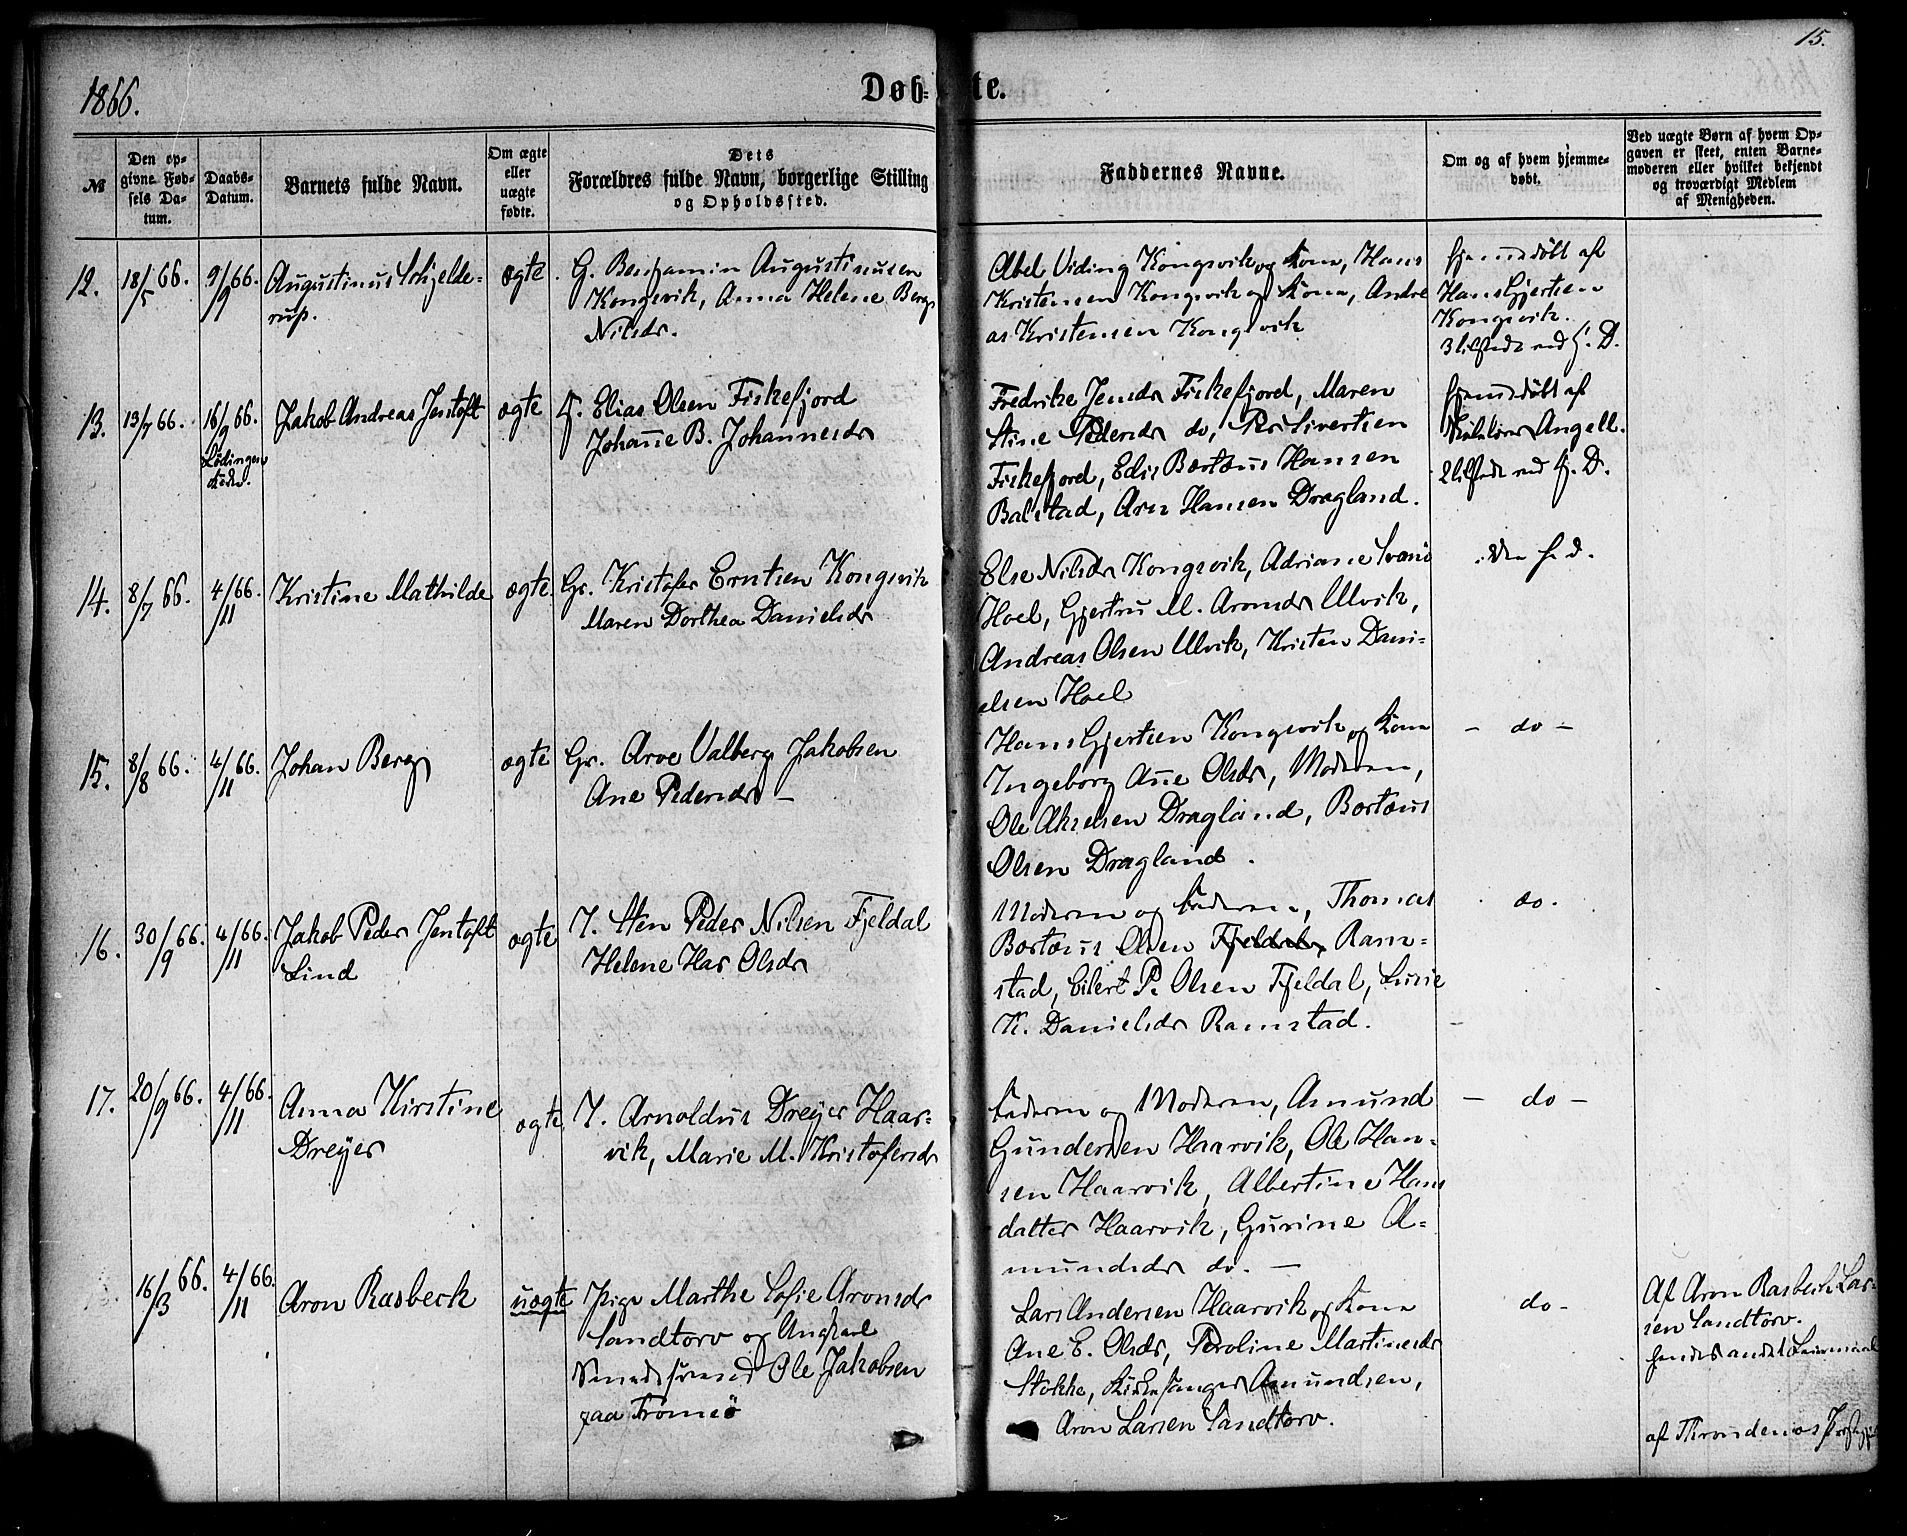 15.
1866.
Døbte.
№
Den op-
givne Fød-
sels Da-
tum.
Daabs-
Datum.
Barnets fulde Navn.
Om ægte
eller
uægte
fødte.
Dets
Forældres fulde Navn, borgerlige Stilling
og Opholdssted.
Faddernes Navne.
Om og af hvem hjemme-
døbt.
Ved uægte Børn af hvem Op-
gaven er skeet, enten Barne-
moderen eller hvilket bekjendt
og troværdigt Medlem
af Menigheden.
12.
18/5 66.
9/9 66.
Augustinus Schjelde-
rup.
ægte.
G. Benjamin Augustinusen
Kongsvik, Anna Helene Berg
Nilsdr.
Abel Viding Kongsvik og Kone, Hans
Kristensen Kongsvik og Kone, Andre
as Kristensen Kongsvik
hjemmedøbt af
Hans Gjertsen
Kongsvik.
3 tilstede ved H. D.
13.
13/7 66.
16/9 66.
Lødingen
Kirke.
Jakob Andreas Jentoft
ægte
Elias Olsen Fiskefjord
Johane B. Johannesdr
Fredrike Jensdr Fiskefjord, Maren
Stine Pedersdr do, Per Sivertsen
Fiskefjord, Edis Bertæus Hansen
Balstad, Arn Hansen Dragland.
hjemmedøbt af
Angell.
2 tilstede ved Hj. D.
14.
8/7 66.
4/11 66.
Kristine Mathilde
ægte.
Gr. Kristofer Erntsen Kongsvik
Maren Dorthea Danielsdr
Else Nilsdr Kongsvik, Adriane
Hoel, Gjertru M. Aronsdr Ulvik,
Andreas Olsen Ulvik, Kristen Dani-
elsen Hoel
15.
8/8 66.
4/11 66.
Johan Berg
ægte
Gr. Arve Valberg Jakobsen
Ane Pedersdr –
Hans Gjertsen Kongsvik og Kone
Ingeborg Ane Olsdr, Moderen,
Ole Akselsen Dragland, Bertæus
Olsen Dragland.
– do –
16.
30/9 66.
4/11 66.
Jakob Peder Jentoft
Lind
ægte
I. Sten Peder Nilsen Fjeldal
Helene Has Olsdr
Moderen og Faderen, Thomas
Bertæus Olsen Fjeldal, Ram-
stad, Eilert P. Olsen Fjeldal, Lusie
K. Danielsdr Ramstad.
do.
17.
20/9 66.
4/11 66.
Anna Kirstine
Dreyer
ægte
I. Arnoldus Dreyer Haar-
vik, Marie M. Kristofersdr
Faderen og Moderen, Asmund
Gundersen Haarvik, Ole Han-
sen Haarvik, Albertine Hans
datter Haarvik, Gurine A-
mundsdr do. –
– do –
16/3 66.
4/11 66.
Aron Rasbeck
uægte
Pige Marthe Sofie Aronsdr
Sandtorv og Ungkarl
Ole Jakobsen
paa Tromsø
Lars Andersen Haarvik og Kone
Ane E. Olsdr, Peroline Martinusdr
Stokke, Kirkesanger Amundsen,
Aron Larsen Sandtorv.
do –
Af Aron Rasbech Lar-
sen Sandtorv.
hendes andet Leiermaal
af Throndenæs